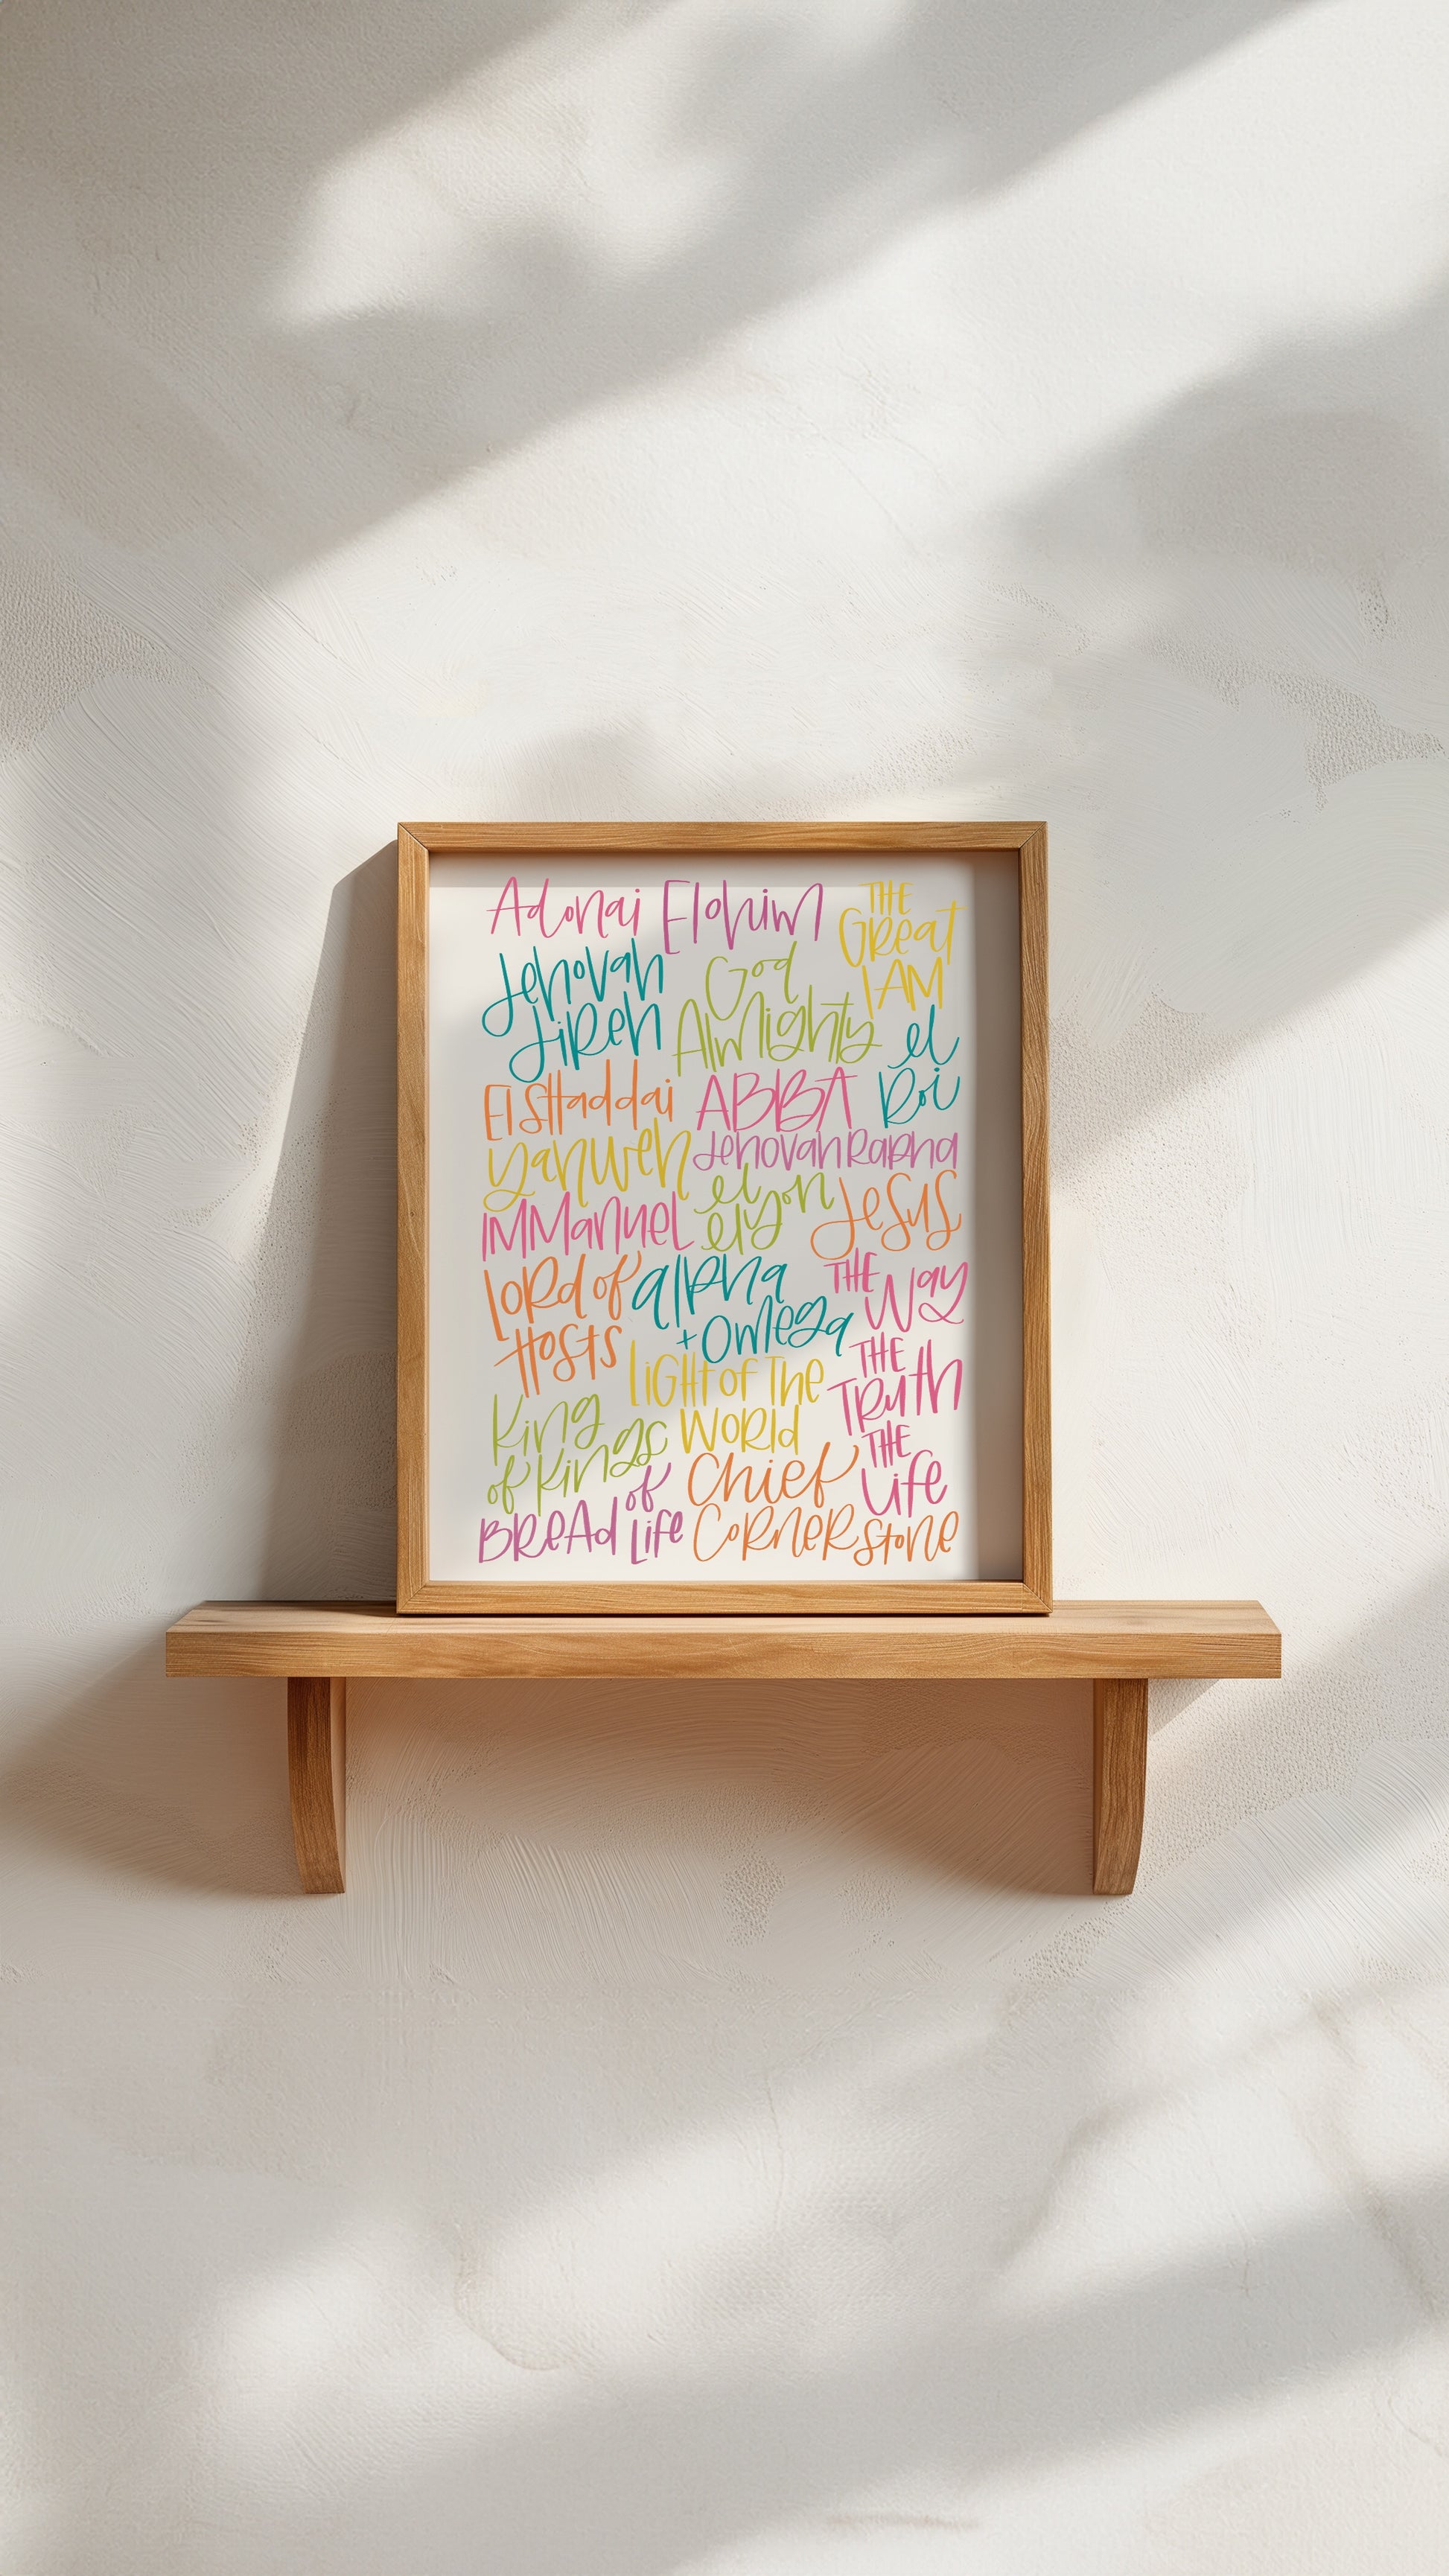 Adonai
Elohim
THE
Great
I AM
Jehovah
Jireh
God
Almighty
el
Roi
El SHaddai
ABBA
Yahweh
Jehovah Rapha
IMManuel
el
elyon
Jesus
Lord of
Hosts
alpha
+ Omega
THE Way
THE
Truth
THE
Life
LiGHt of The
World
King
of Kings
Bread of Life
Chief
Cornerstone